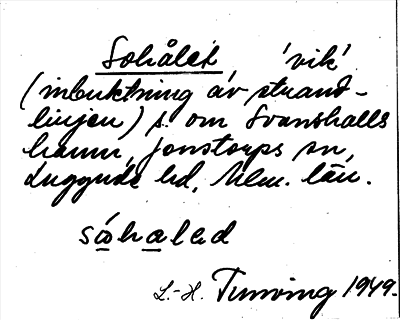 Sohålet 'vik'
(inbuktning av strand-
linjen) s. om Svanshalls
hamn, Jonstorps sn,
Luggude hd, Mlm. län.
sohaled
L.-H. Tunving 1949.